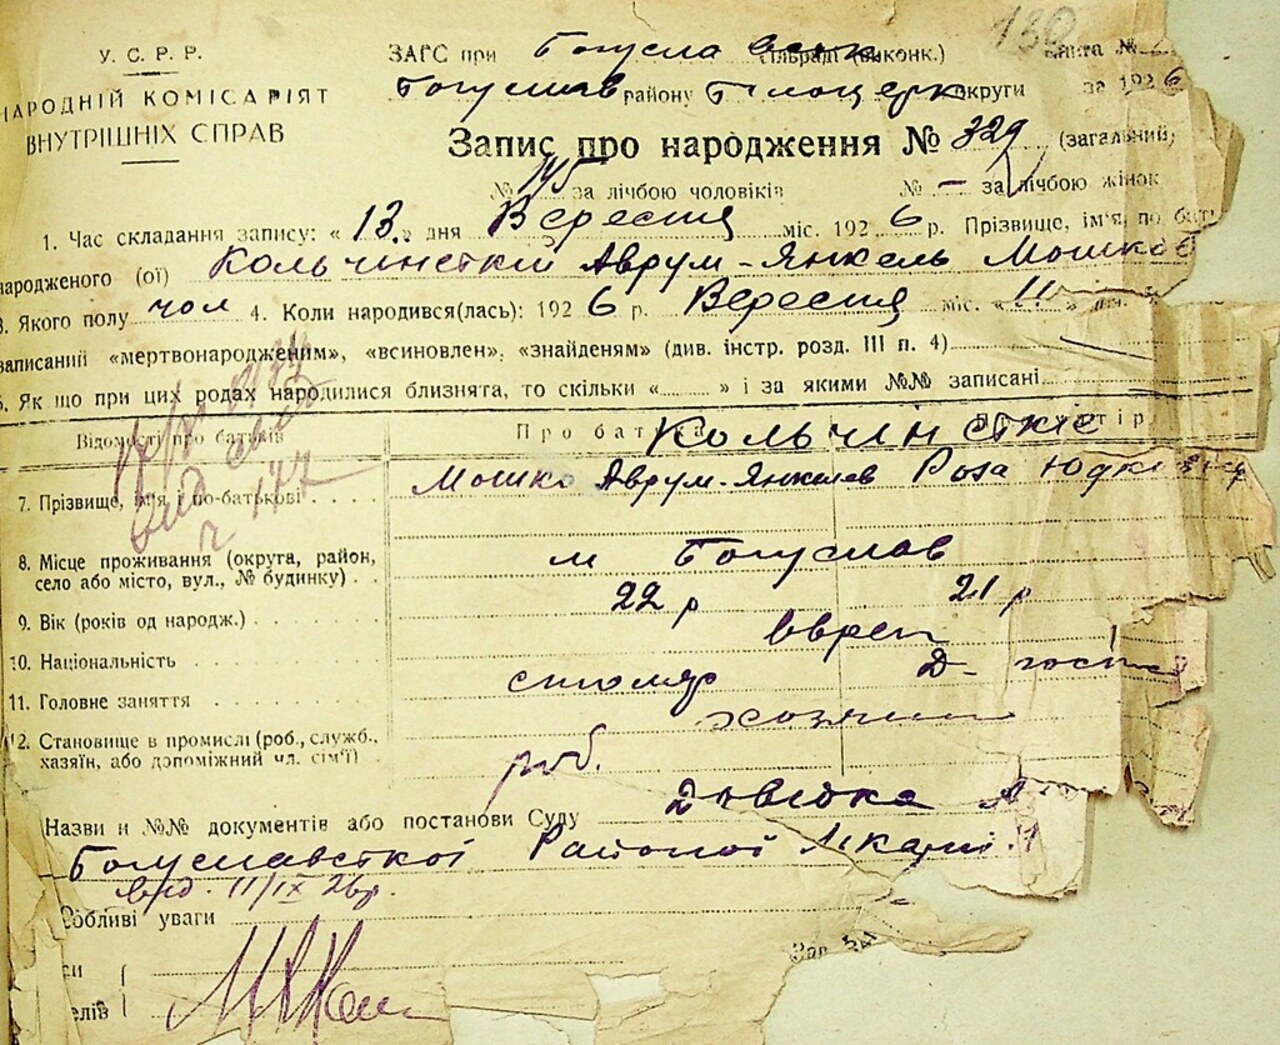 130
У. С. Р. Р.
НАРОДНІЙ КОМІСАРІЯТ
ВНУТРІШНІХ СПРАВ
ЗАГС при Богусла сільраді (виконк.) №
Богуслав району Білоцерк округи за 1926
Запис про народження № 329 (загальний)
№ 145 за лічбою чоловіків № — за лічбою жінок
1. Час складання запису: « 13 » дня Вересня міс. 1926 р. Прізвище, ім'я, по бат
народженого (ої) Кольчинсткій Аврум-Янкель Мошков
3. Якого полу чол 4. Коли народився(лась): 1926 р. Вересня міс. « 11 »
записаний «мертвонародженим», «всиновлен», «знайденям» (див. інстр. розд. III п. 4)
Як що при цих родах народилися близнята, то скільки « » і за якими №№ записані
Відомості про батьків Про батька Кольчінсткіє
7. Прізвище, ім'я і по-батькові Мошко Аврум-Янкелев Роза Юдковна
8. Місце проживання (округа, район, село або місто, вул., № будинку) м Богуслав
9. Вік (років од народж.) 22 р 21 р
10. Національність евреи
11. Головне заняття столяр Д-
хозяин
12. Становище в промислі (роб., служб., хазяїн, або допоміжний чл. сім'ї) роб.
Назви и №№ документів або постанови Суду Довідка
Богуславсткої Районої Лікарні
вид. 11/IX 26 р.
Особливі уваги